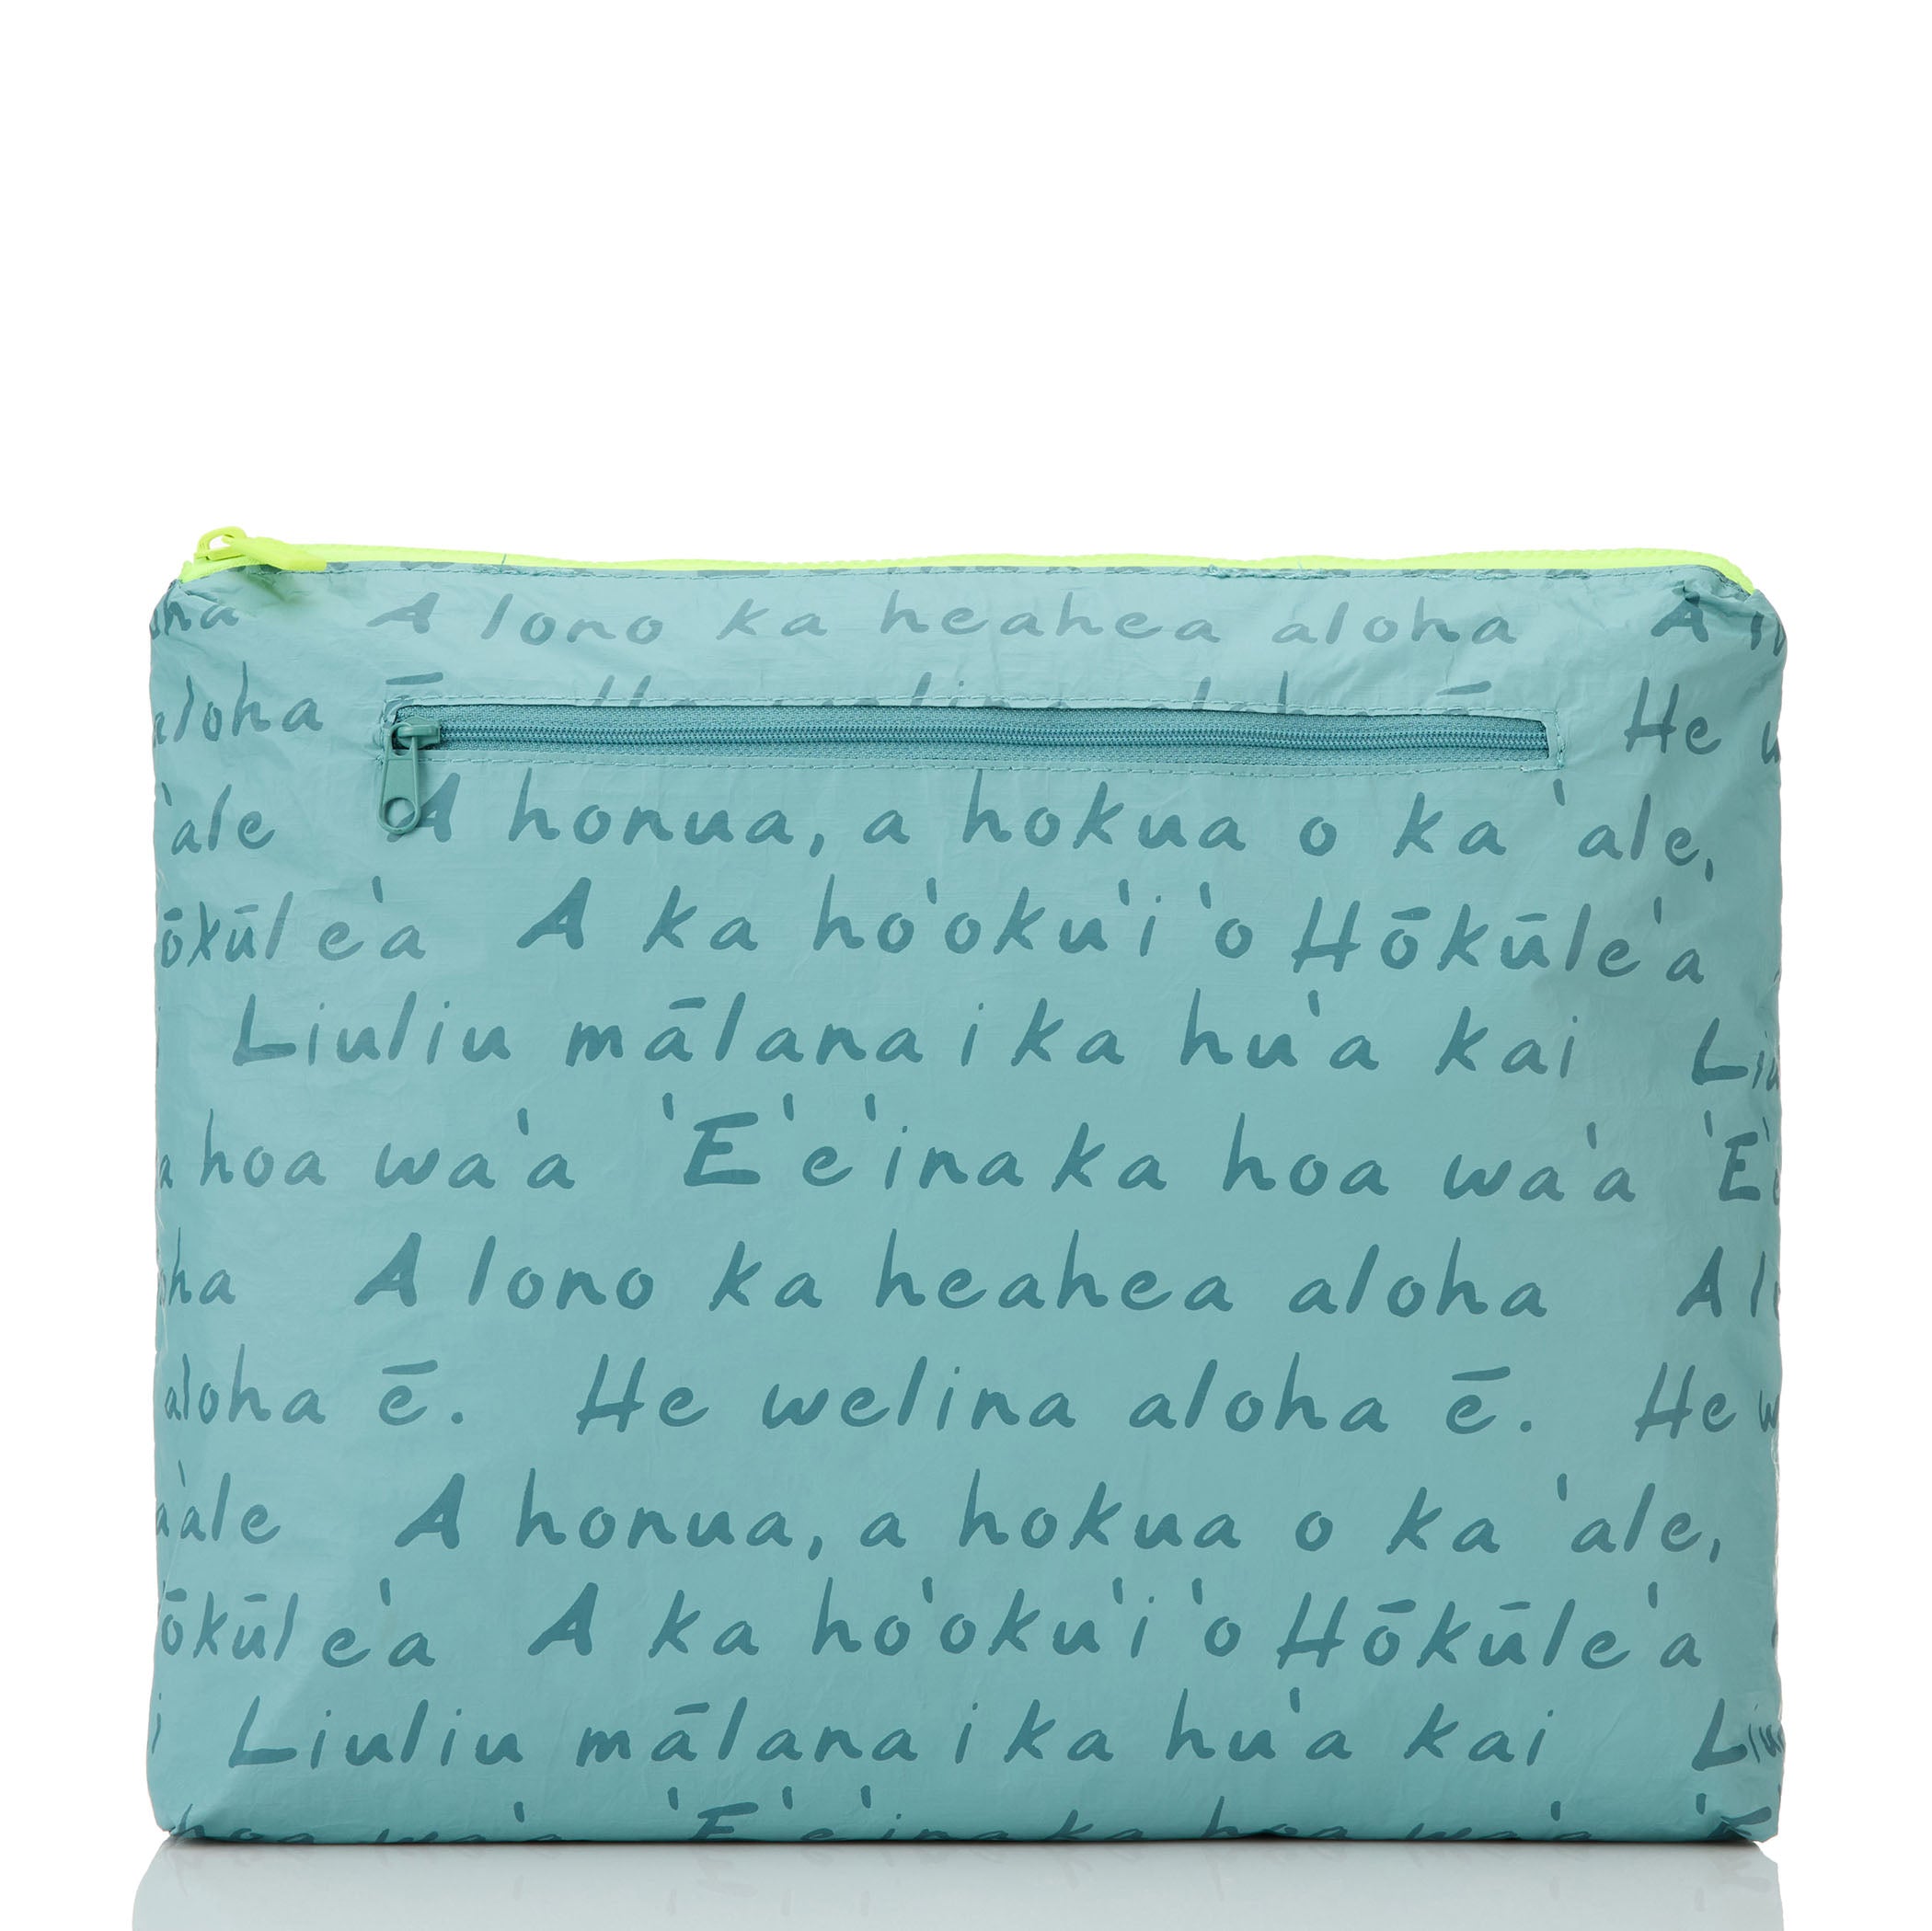 A lono ka heahea aloha A
aloha ē He welina aloha ē He
'ale A honua, a hokua o ka 'ale,
ōkūle'a A ka ho'oku'i 'o Hōkūle'a
Liuliu mālana i ka hu'a kai
hoa wa'a 'E'e'ina ka hoa wa'a
A lono ka heahea aloha A
aloha ē. He welina aloha ē. He
'ale A honua, a hokua o ka 'ale,
ōkūle'a A ka ho'oku'i 'o Hōkūle'a
Liuliu mālana i ka hu'a kai
hoa wa'a 'E'e'ina ka hoa wa'a